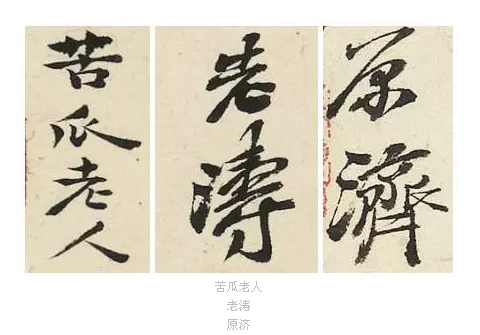 苦瓜老人
老濤
原濟
苦瓜老人
老涛
原济